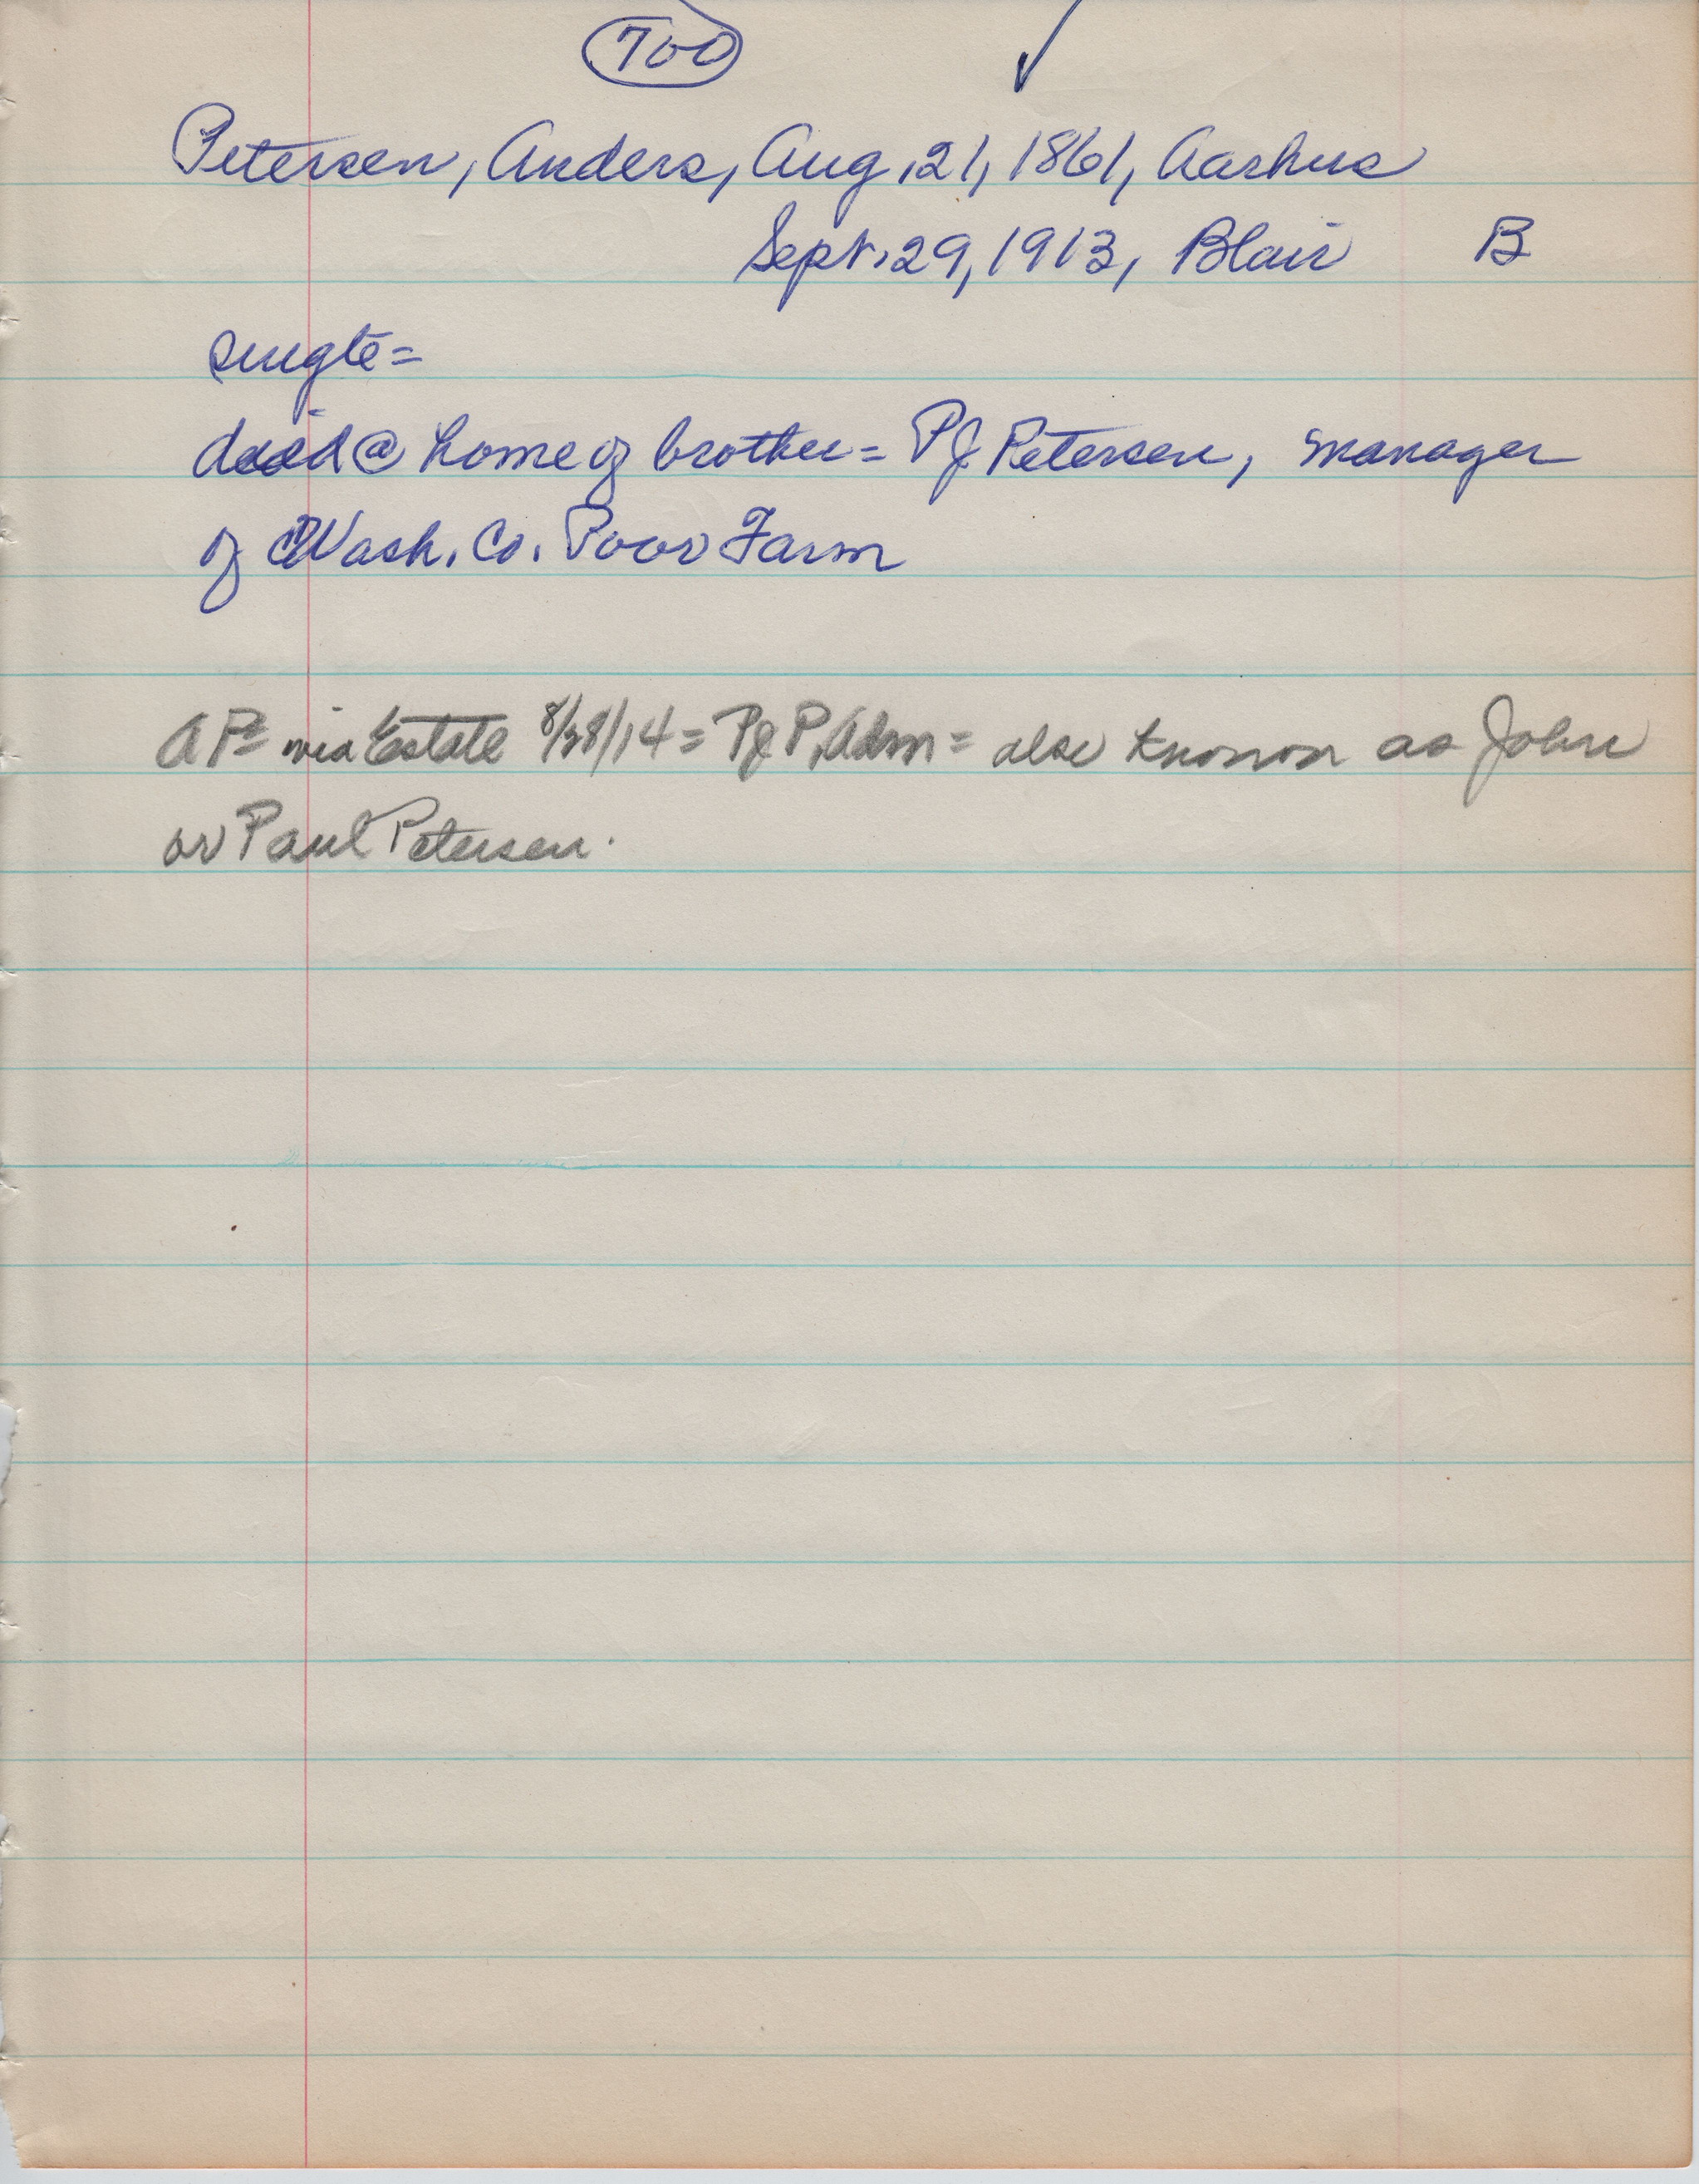 700 ✓
Petersen, Anders, Aug. 21, 1861, Aarhus
Sept. 29, 1913, Blair B
single=
died @ home of brother = PJ Petersen, manager
of Wash. Co. Poor Farm
AP= via Estate 8/28/14 = PJ P, Adm = also known as John
or Paul Petersen.